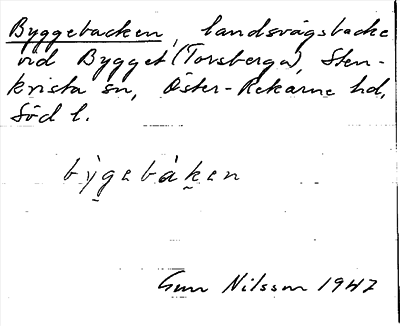 Byggebacken, landsvägsbacke
vid Bygget (Torsberga), Sten-
kvista sn, Öster-Rekarne hd,
Söd l.
bỳgebáken
Gun Nilsson 1947